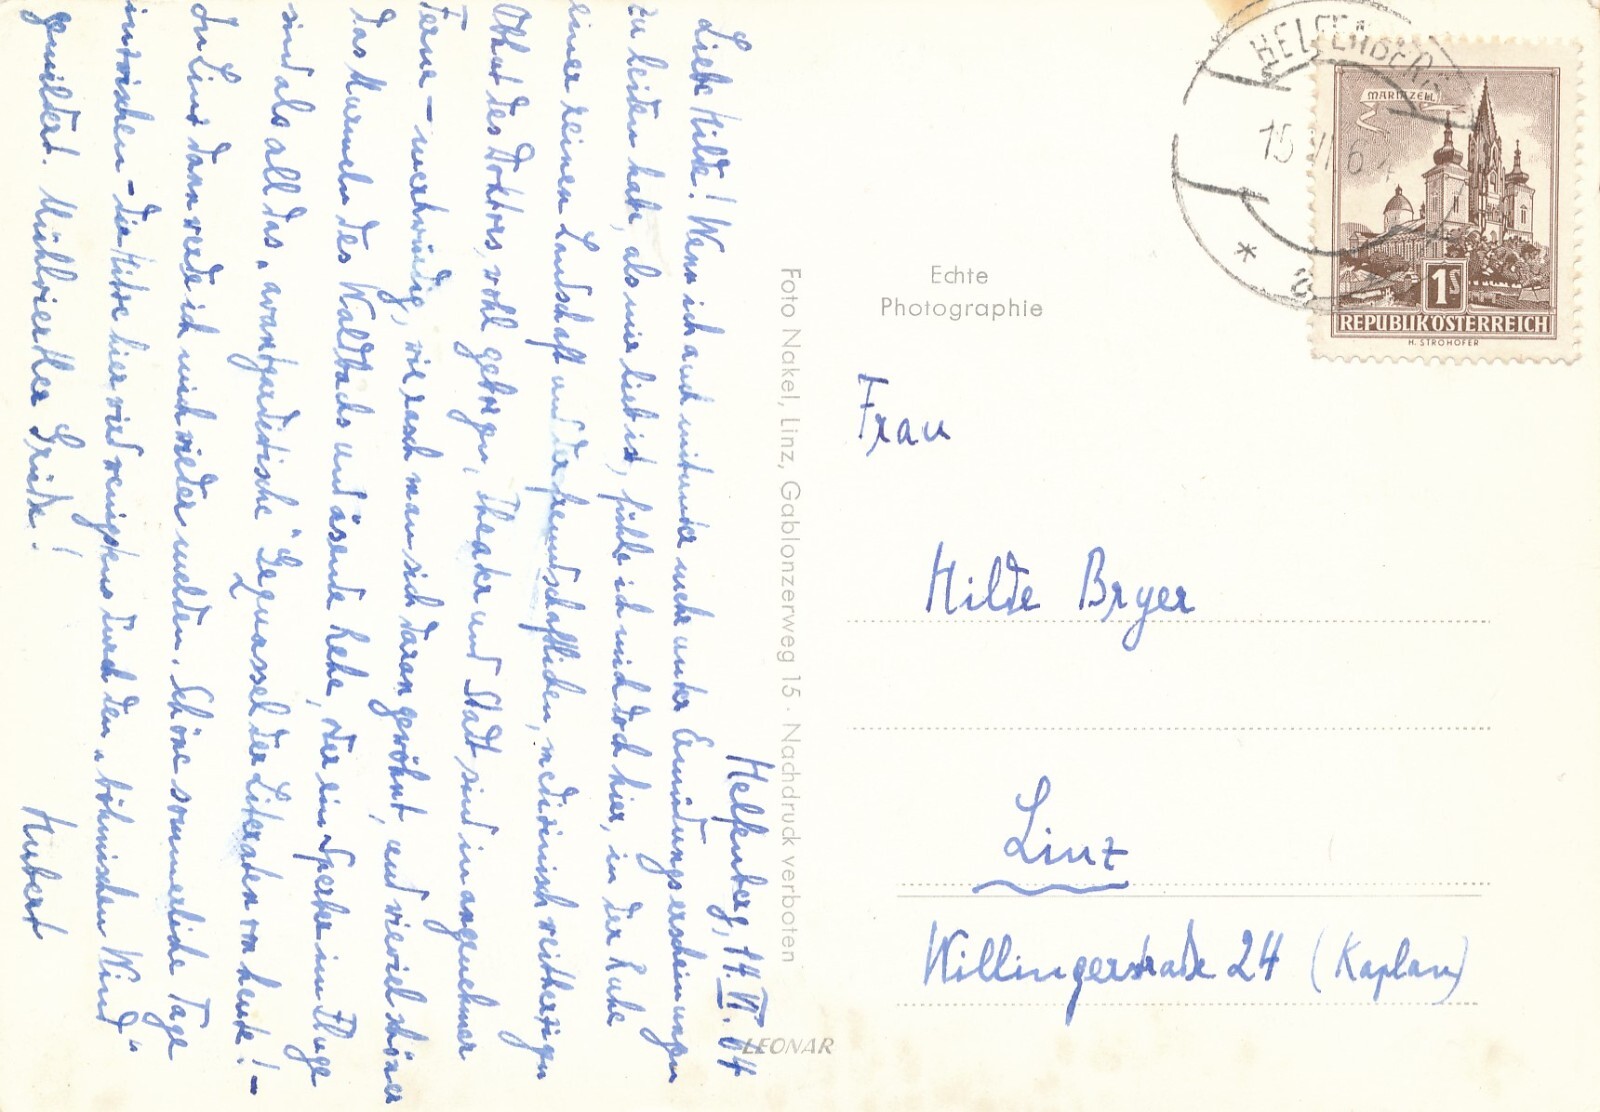 Helfenberg, 14. VI. 64
Liebe Hilde! Wenn ich auch mitunter mehr unter Ermüdungserscheinungen
zu leiden habe, als mir lieb ist, fühle ich mich doch hier, in der Ruhe
einer reinen Landschaft und der freundschaftlichen, medizinisch weitherzigen
Obhut des Doktors, wohl geborgen, Theater und Stadt sind in angenehmer
Ferne – merkwürdig, wie rasch man sich daran gewöhnt, und wieviel schöner
das Murmeln des Waldbachs und äsende Rehe, oder ein Specht im Fluge
sind als all das „avantgardistische" Gequassel der Literaten von heute! –
In Linz dann werde ich mich wieder melden. Schöne sommerliche Tage
inzwischen – die Hitze hier wird wenigstens durch den „böhmischen Wind"
gemildert. Mühlviertler Grüße!
Hubert
Foto Nakel, Linz, Gablonzerweg 15 · Nachdruck verboten
LEONAR
Echte
Photographie
HELFENBERG
15. VI. 64
* a
MARIAZELL
1S
REPUBLIK ÖSTERREICH
H. STROHOFER
Frau
Hilde Bryer
Linz
Willingerstraße 24 (Kaplan)